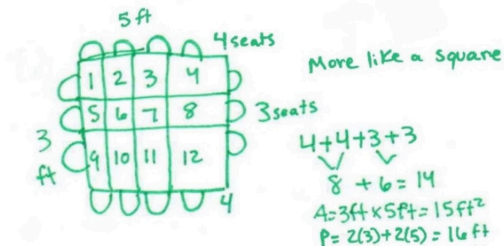 5 ft
4 seats
1 2 3 4
5 6 7 8
3 seats
3
ft
9 10 11 12
4
More like a square
4+4+3+3
8 + 6 = 14
A=3ft x 5ft = 15ft²
P= 2(3)+2(5) = 16 ft